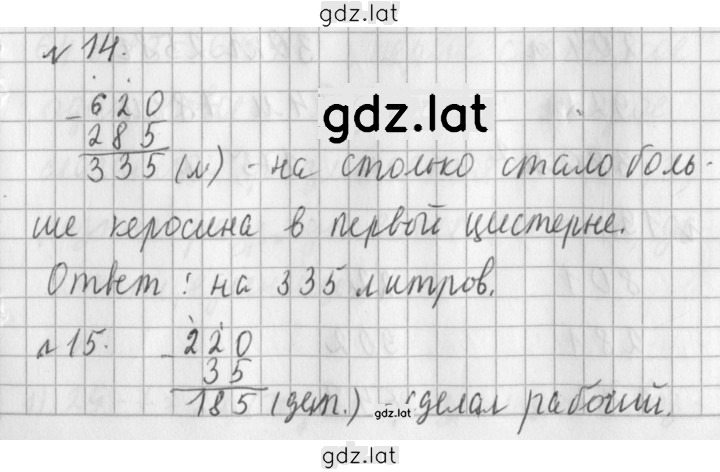 gdz.lat
№ 14.
- 620
285
335 (л) - на столько стало боль-
ше керосина в первой цистерне.
Ответ: на 335 литров.
№ 15. - 220
35
185 (дет.) - сделал рабочий.
gdz.lat
gdz.lat
gdz.lat